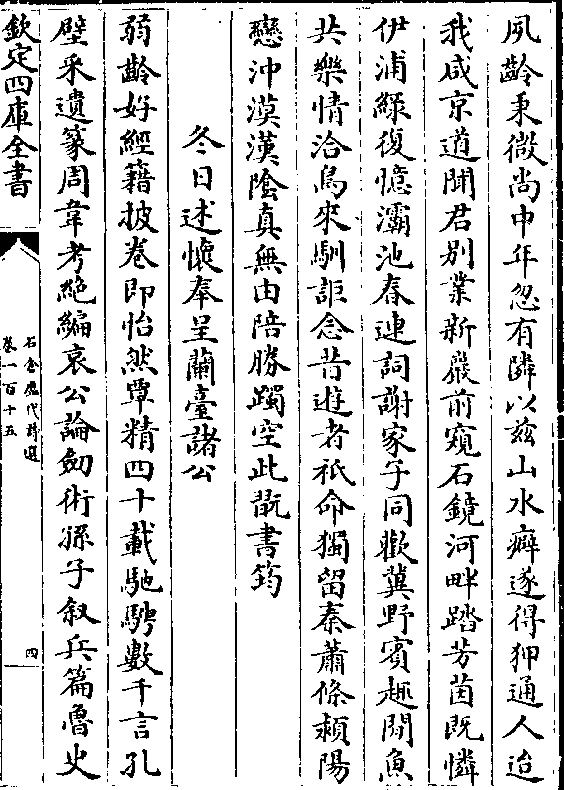 夙齡秉微尚中年忽有隣以兹山水癖遂得狎通人迨
我咸京道聞君别業新巖前窺石鏡河畔踏芳茵既憐
伊浦緑復憶灞池春連詞謝家子同歡冀野賓趣閑魚
共樂情洽鳥來馴詎念昔遊者祇命獨留秦蕭條潁陽
戀沖漠漢隂真無由陪勝躅空此翫書筠
冬日述懷奉呈蘭臺諸公
弱齡好經籍披卷即怡然覃精四十載馳騁數千言孔
壁采遺篆周韋考絶編哀公論劒術孫子叙兵篇魯史
欽定四庫全書
石倉歷代詩選
卷一百十五
四